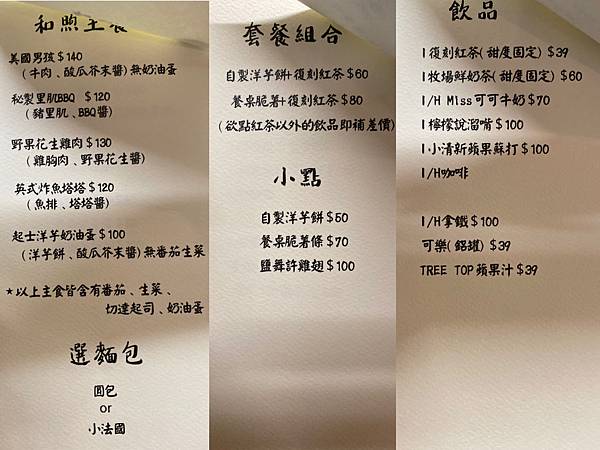 和煦主餐
美國男孩$140
(牛肉、酸瓜芥末醬)無奶油蛋
秘製里肌BBQ $120
(豬里肌、BBQ醬)
野果花生雞肉$130
(雞胸肉、野果花生醬)
英式炸魚塔塔$120
(魚排、塔塔醬)
起士洋芋奶油蛋$100
(洋芋餅、酸瓜芥末醬)無番茄生菜
★以上主食皆含有番茄、生菜、
切達起司、奶油蛋
選麵包
圓包
or
小法國
套餐組合
自製洋芋餅+復刻紅茶$60
餐桌脆薯+復刻紅茶$80
(欲點紅茶以外的飲品即補差價)
小點
自製洋芋餅$50
餐桌脆薯條$70
鹽舞許雞翅$100
飲品
I復刻紅茶(甜度固定)$39
I牧場鮮奶茶(甜度固定)$60
I/H Miss可可牛奶$70
I檸檬說溜嘴$100
I小清新蘋果蘇打$100
I/H咖啡
I/H拿鐵$100
可樂(鋁罐)$39
TREE TOP蘋果汁$39